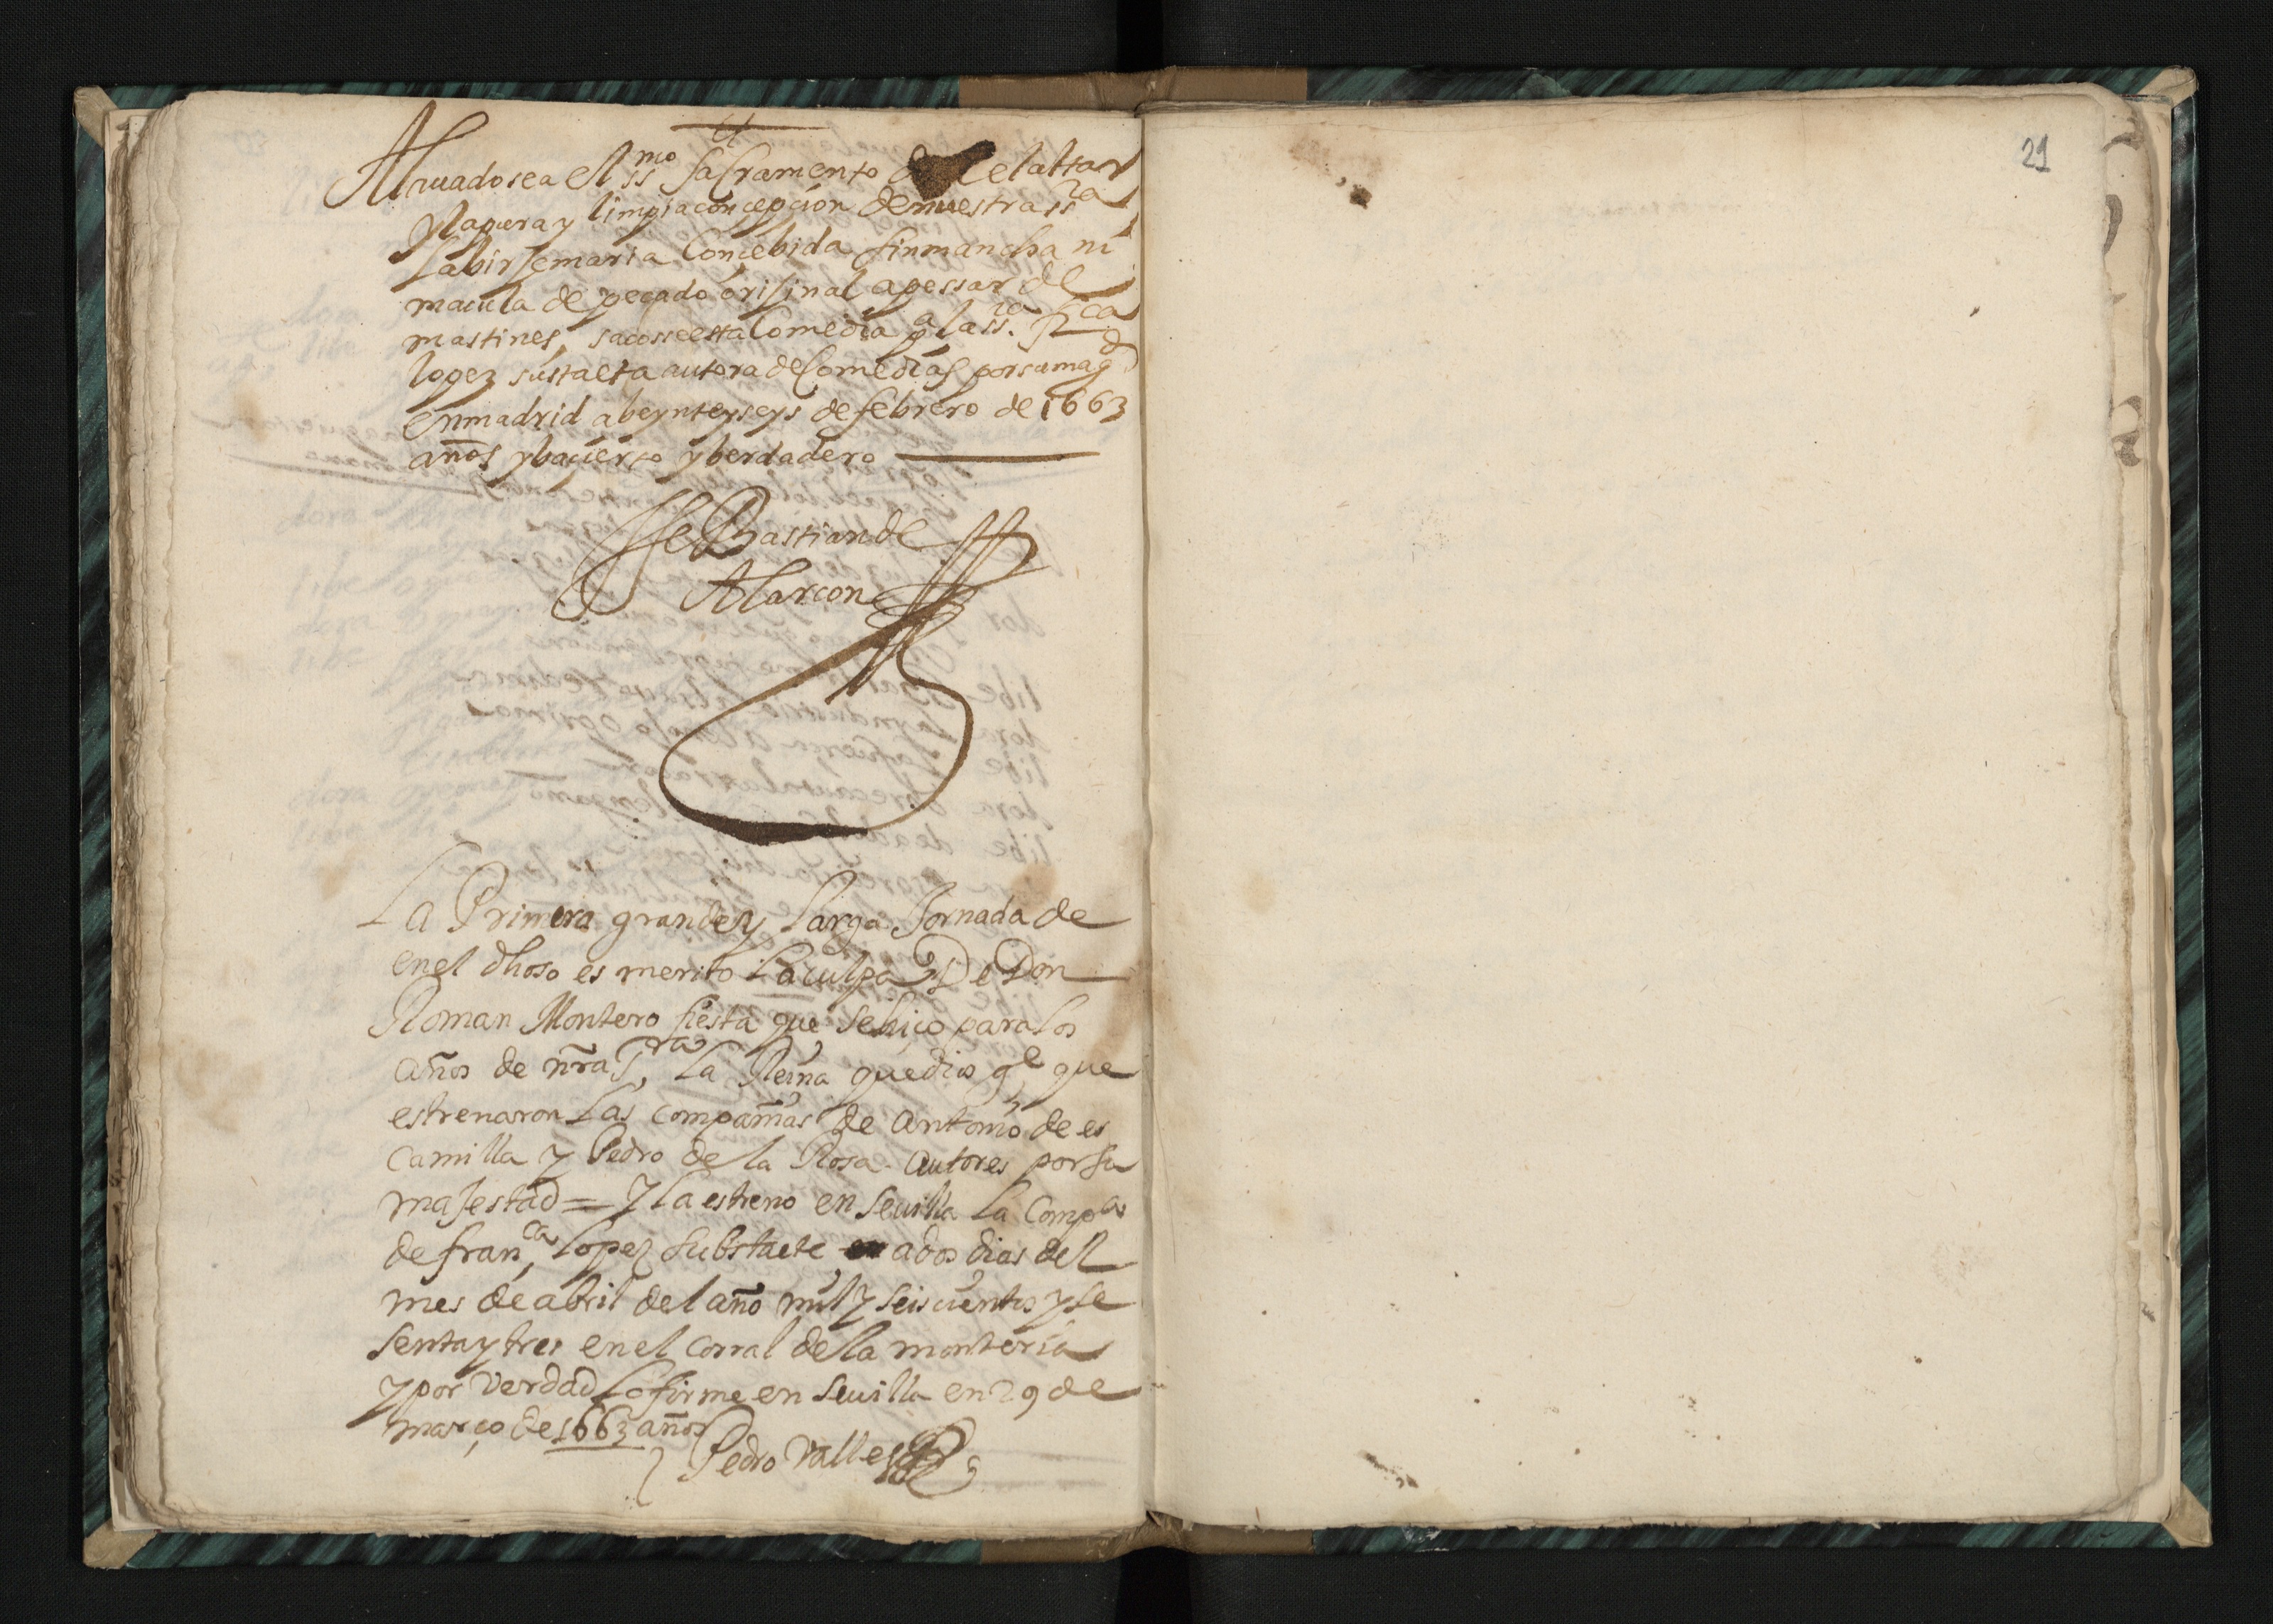 Alauado sea el SSmo Sacramento del altar
y la pura y limpia concepcion de nuestra ssra
la birjemaria Concebida sin mancha ni
macula de pecado orijinal apessar de
mastines, sacosse esta Comedia pa la ssra. frca
lopez sustaeta autora de Comedias por su magd
en madrid a beynteyseys de febrero de 1663
años y ba cierto y berdadero
SeBastian de
Alarcon
La Primera grande y larga Jornada de
en el dhoso es merito La culpa De Don
Roman Montero fiesta que se hiço para los
años de nra Sra, La Reina que dios ge que
estrenaron Las compañias de Antonio de es
camilla y Pedro de la Rosa. Autores por su
majestad = y la estreno en Seuilla la Compa
de franca, Lopez Substaete a dos dias del
mes de abril del año mil y seiscientos y se
senta y tres en el corral de la monteria
y por verdad lo firme en Seuilla en 29 de
março de 1663 años
Pedro Valles
21